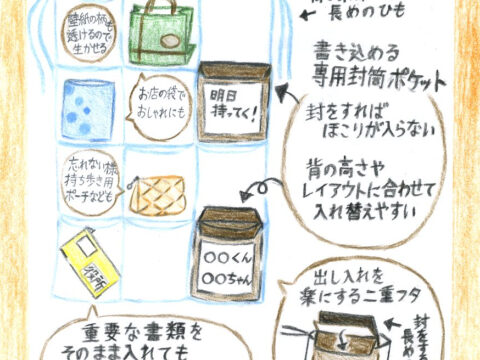 長めのひも
壁紙の柄も
透けるので
生かせる
書き込める
専用封筒ポケット
お店の袋で
おしゃれにも
明日
持ってく!
封をすれば
ほこりが入らない
忘れない様
持ち歩き用
ポーチなども
背の高さや
レイアウトに合わせて
入れ替えやすい
役所
○○くん
○○ちゃん
出し入れを
楽にする二重フタ
重要な書類を
そのまま入れても
封をす
長め